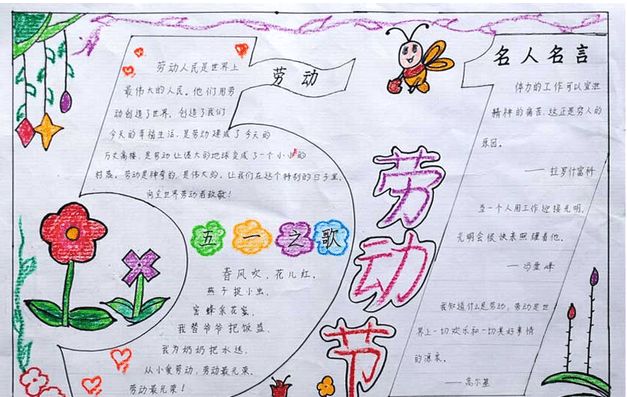 劳动
劳动人民是世界上
最伟大的人民。他们用劳
动创造了世界,创造了我们
今天的幸福生活,是劳动建成了今天的
万丈高楼,是劳动让偌大的地球变成了一个小小的
村落。劳动是神奇的,是伟大的。让我们在这个特别的日子里,
向全世界劳动者致敬!
五一之歌
春风吹,花儿红,
燕子捉小虫,
蜜蜂采花蜜,
我帮爷爷把饭盛
我为奶奶把水送,
从小爱劳动,劳动最光荣,
劳动最光荣!
劳动节
名人名言
体力的工作可以宣泄
精神的痛苦,这正是穷人的
原因。
——拉罗什富科
当一个人用工作迎接光明,
光明会很快来照耀着他。
——冯雪峰
我知道什么是劳动,劳动是世
界上一切欢乐和一切美好事情
的源泉。
——高尔基